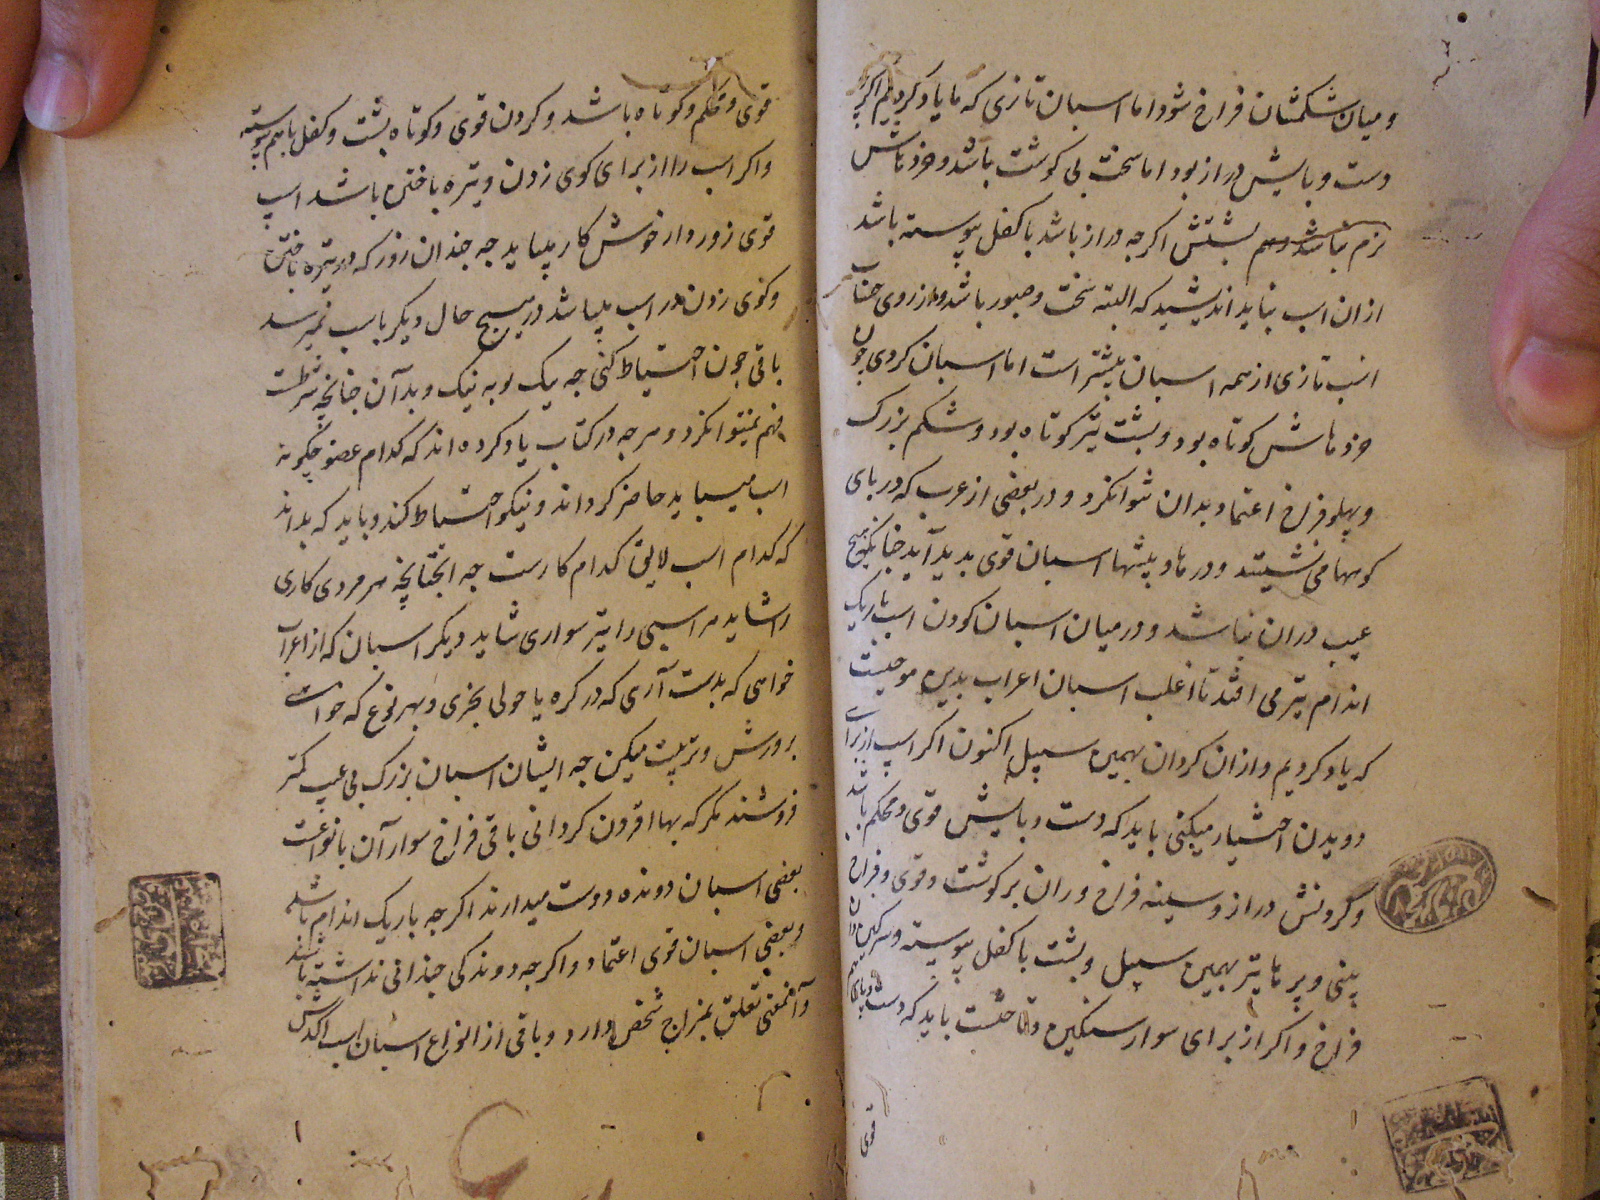 و میان شکمشان فراخ شود اما اسبان تازی که ما یاد کردیم اکر
دست و پایش دراز بود اما سخت بی کوشت باشد و خردهاش
نرم باشد و هم پشتش اکرچه دراز باشد با کفل پیوسته باشد
ازان اسب نباید اندیشید که البته سخت و صبور باشد و از روی
اسب تازی از همه اسبان بیشتر است اما اسبان کردی چون
خردهاش کوتاه بود و پشت نیز کوتاه بود و شکم بزرک
و پهلو فراخ اعتماد بدان توانکرد و در بعضی از عرب که در پای
کوهها می نشینند و درها و بیشها اسبان قوی بدید آید چنانکه هیچ
عیب دران نباشد و در میان اسبان کودن اسب باریک
اندام نیز می افتد تا اغلب اسبان اعراب بدین موجبست
که یاد کردیم و ازان کردان بهمین سبیل اکنون اکر اسپ از برای
دویدن اختیار میکنی باید که دست و پایش قوی و محکم باشد
و کردنش دراز و سینه فراخ و ران پر کوشت و قوی و فراخ
بینی و پرها نیز بهمین سبیل و پشت با کفل پیوسته و
فراخ و اکر از برای سوار سنکین و تاختست باید که دست و پای
قوی
قوی و محکم و کوتاه باشد و کردن قوی و کوتاه پشت و کفل باهم پیوسته
و اکر اسب را از برای کوی زدن و نیزه باختن باشد اسپ
قوی زوردار خوش کار میباید چه چندان زور که در نیزه باختن
و کوی زدن در اسب میباشد در هیچ حال دیکر باسب نمیرسد
باقی چون احتیاط کنی چه یک لوبه نیک و بد آن چنانچه شرطست
فهم نمیتوانکرد و هرچه در کتاب یاد کرده اند که کدام عضو چکونه
اسب میباید حاضر کرداند و نیکو احتیاط کند و باید که بداند
که کدام اسب لایق کدام کارست چه انچنانچه هر مردی کاری
را شاید هر اسبی را نیز سواری شاید دیکر اسبان که از اعراب
خواهی که بدست آری که در کره یا حولی بخری و بهر نوع که خواهی
پرورش و تربیت میکن چه ایشان اسبان بزرک بی عیب کمتر
فروشند مکر که بها افزون کردانی باقی فراخ سوار آن بانواعست
بعضی اسبان دونده دوست میدارند اکرچه باریک اندام باشد
و بعضی اسبان قوی اعتماد و اکرچه دوندکی چندانی نداشته باشند
و آنمعنی تعلق بمزاج شخص دارد و باقی از انواع اسبان اسب اکدش